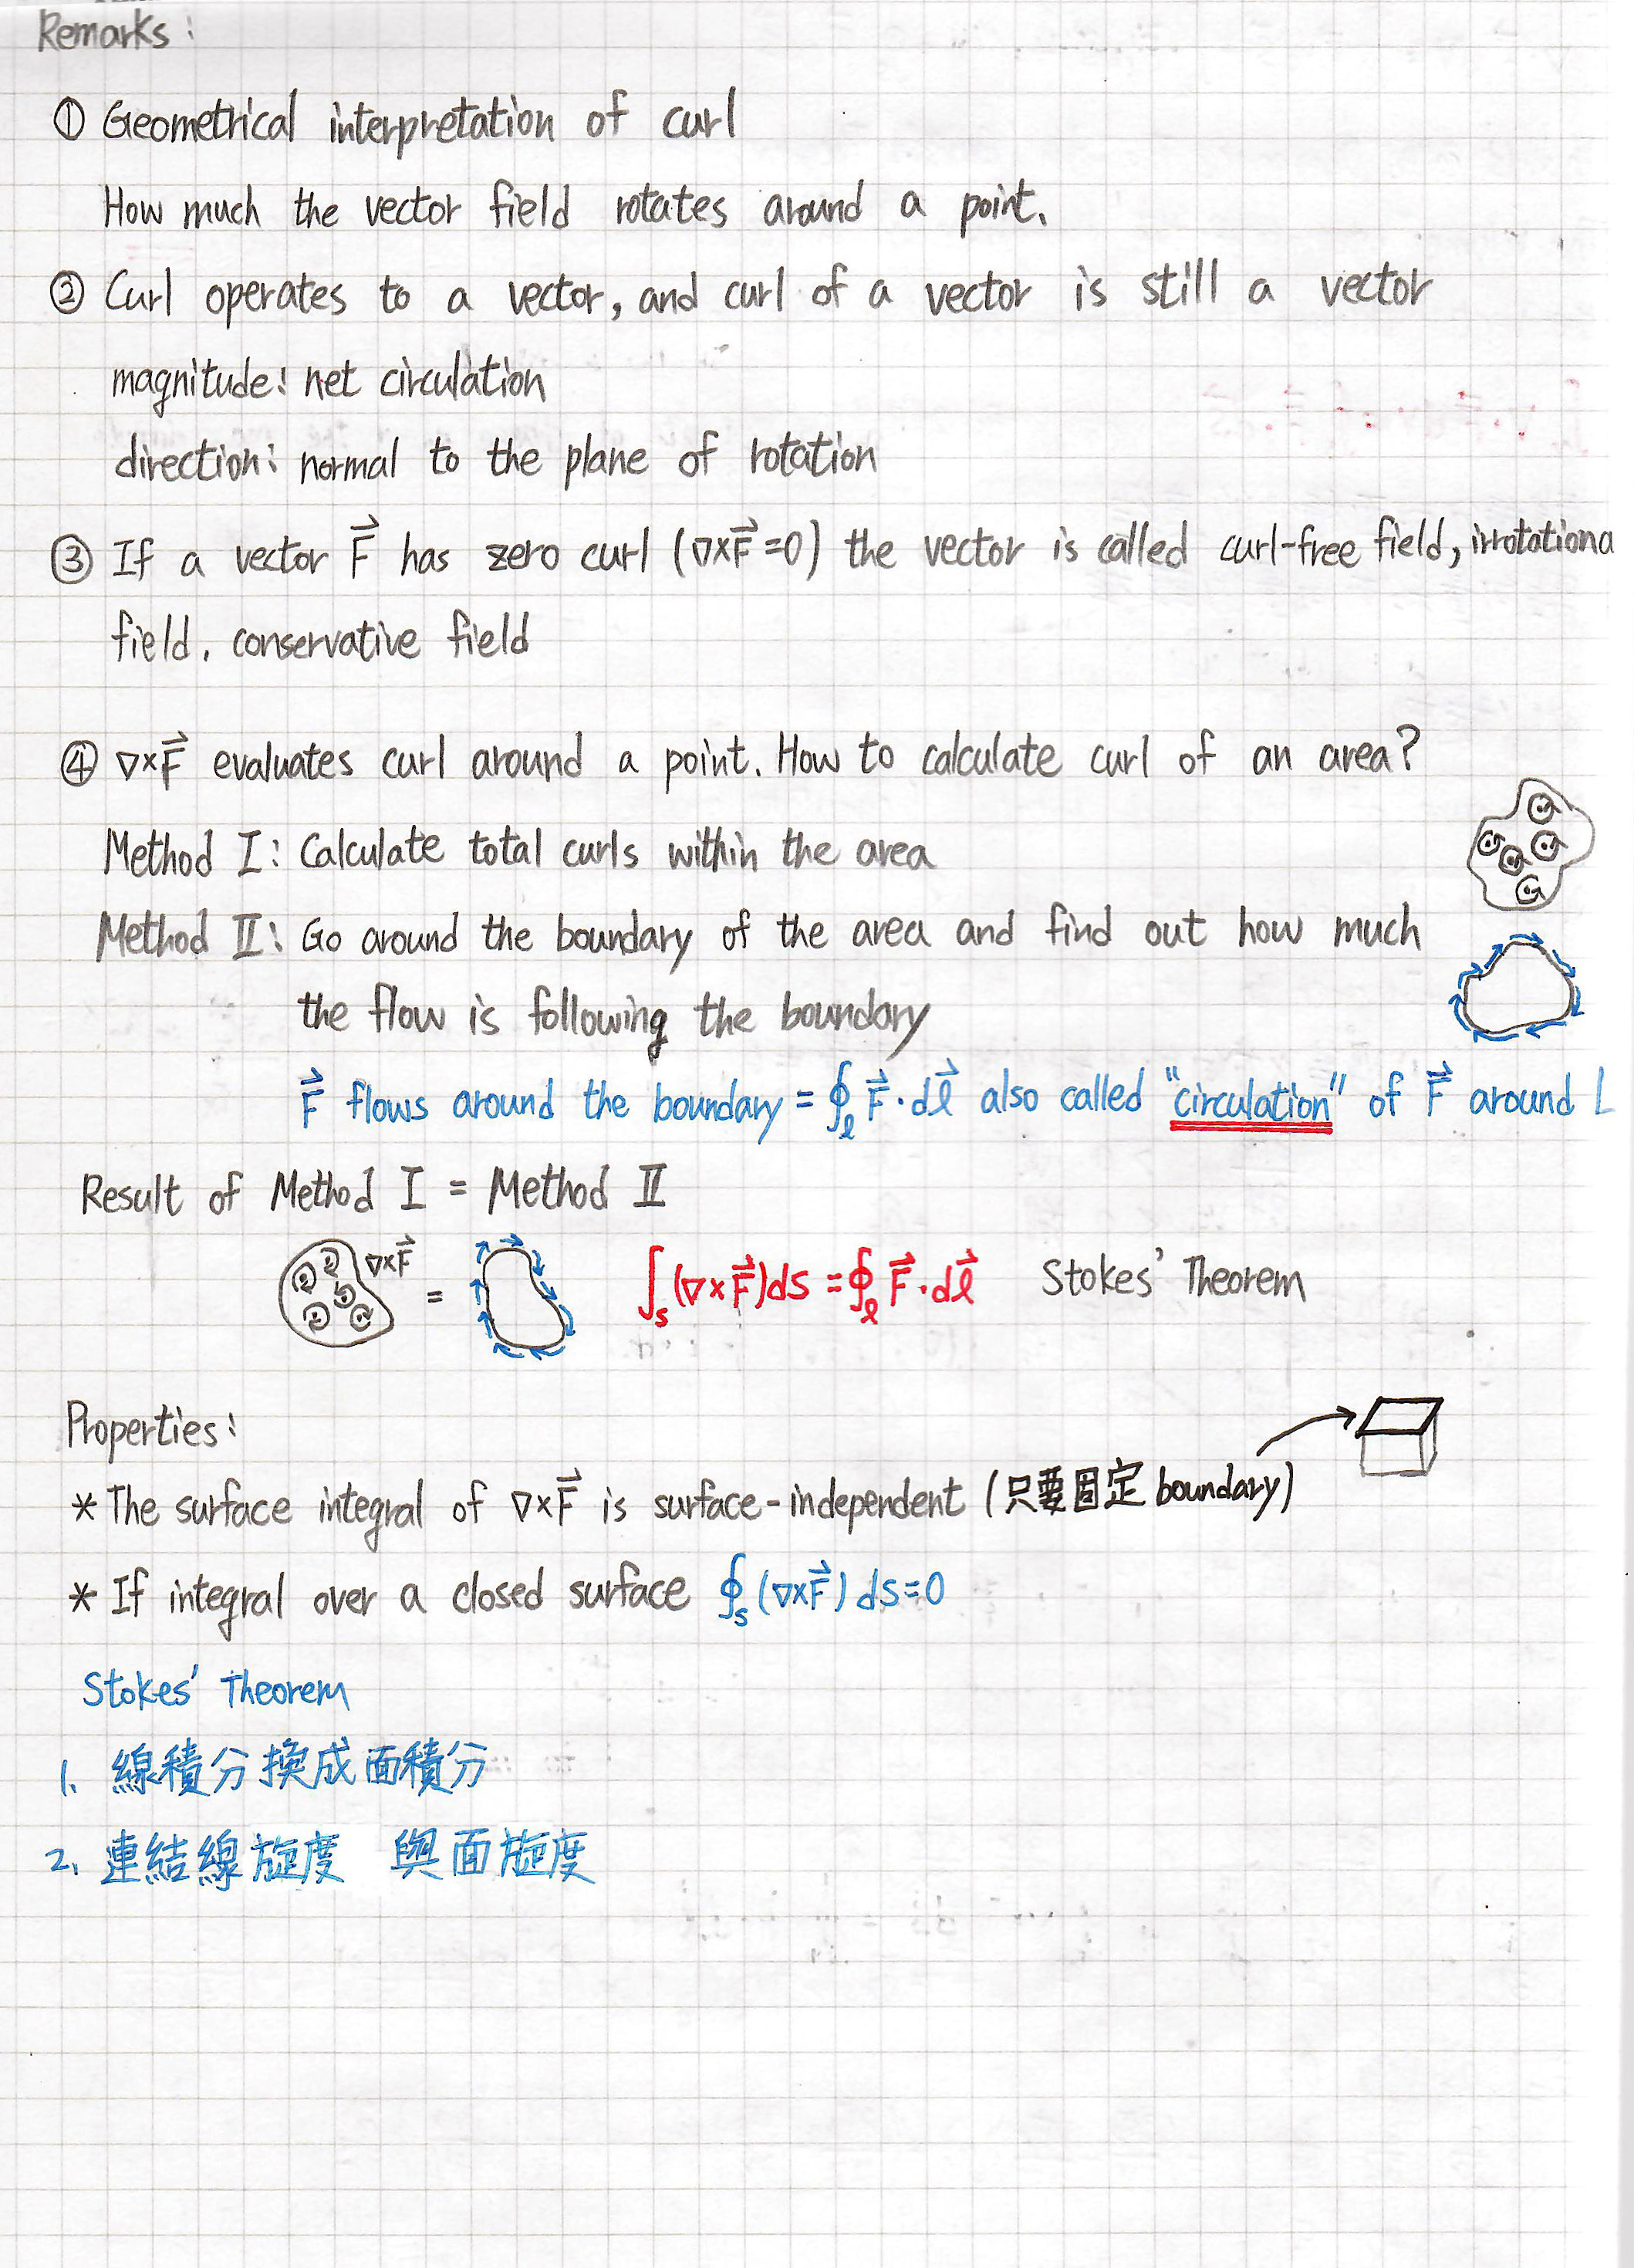 Remarks:
① Geometrical interpretation of curl
How much the vector field rotates around a point.
② Curl operates to a vector, and curl of a vector is still a vector
magnitude: net circulation
direction: normal to the plane of rotation
③ If a vector F⃗ has zero curl (∇×F⃗=0) the vector is called curl-free field, irrotationa
field, conservative field
④ ∇×F⃗ evaluates curl around a point. How to calculate curl of an area?
Method I: Calculate total curls within the area
Method II: Go around the boundary of the area and find out how much
the flow is following the boundary
F⃗ flows around the boundary = ∮ₗ F⃗·dl⃗ also called "circulation" of F⃗ around L
Result of Method I = Method II
∇×F⃗ = ∫ₛ(∇×F⃗)ds = ∮ₗ F⃗·dl⃗ Stokes' Theorem
Properties:
* The surface integral of ∇×F⃗ is surface-independent (只要固定 boundary)
* If integral over a closed surface ∮ₛ(∇×F⃗) ds=0
Stokes' Theorem
1. 線積分換成面積分
2. 連結線旋度 與面旋度